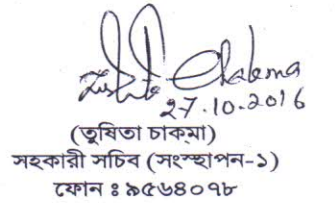 Tushita Chakma
27.10.2016
(তুষিতা চাক্‌মা)
সহকারী সচিব (সংস্হাপন-১)
ফোন ঃ ৯৫৬৪০৭৮